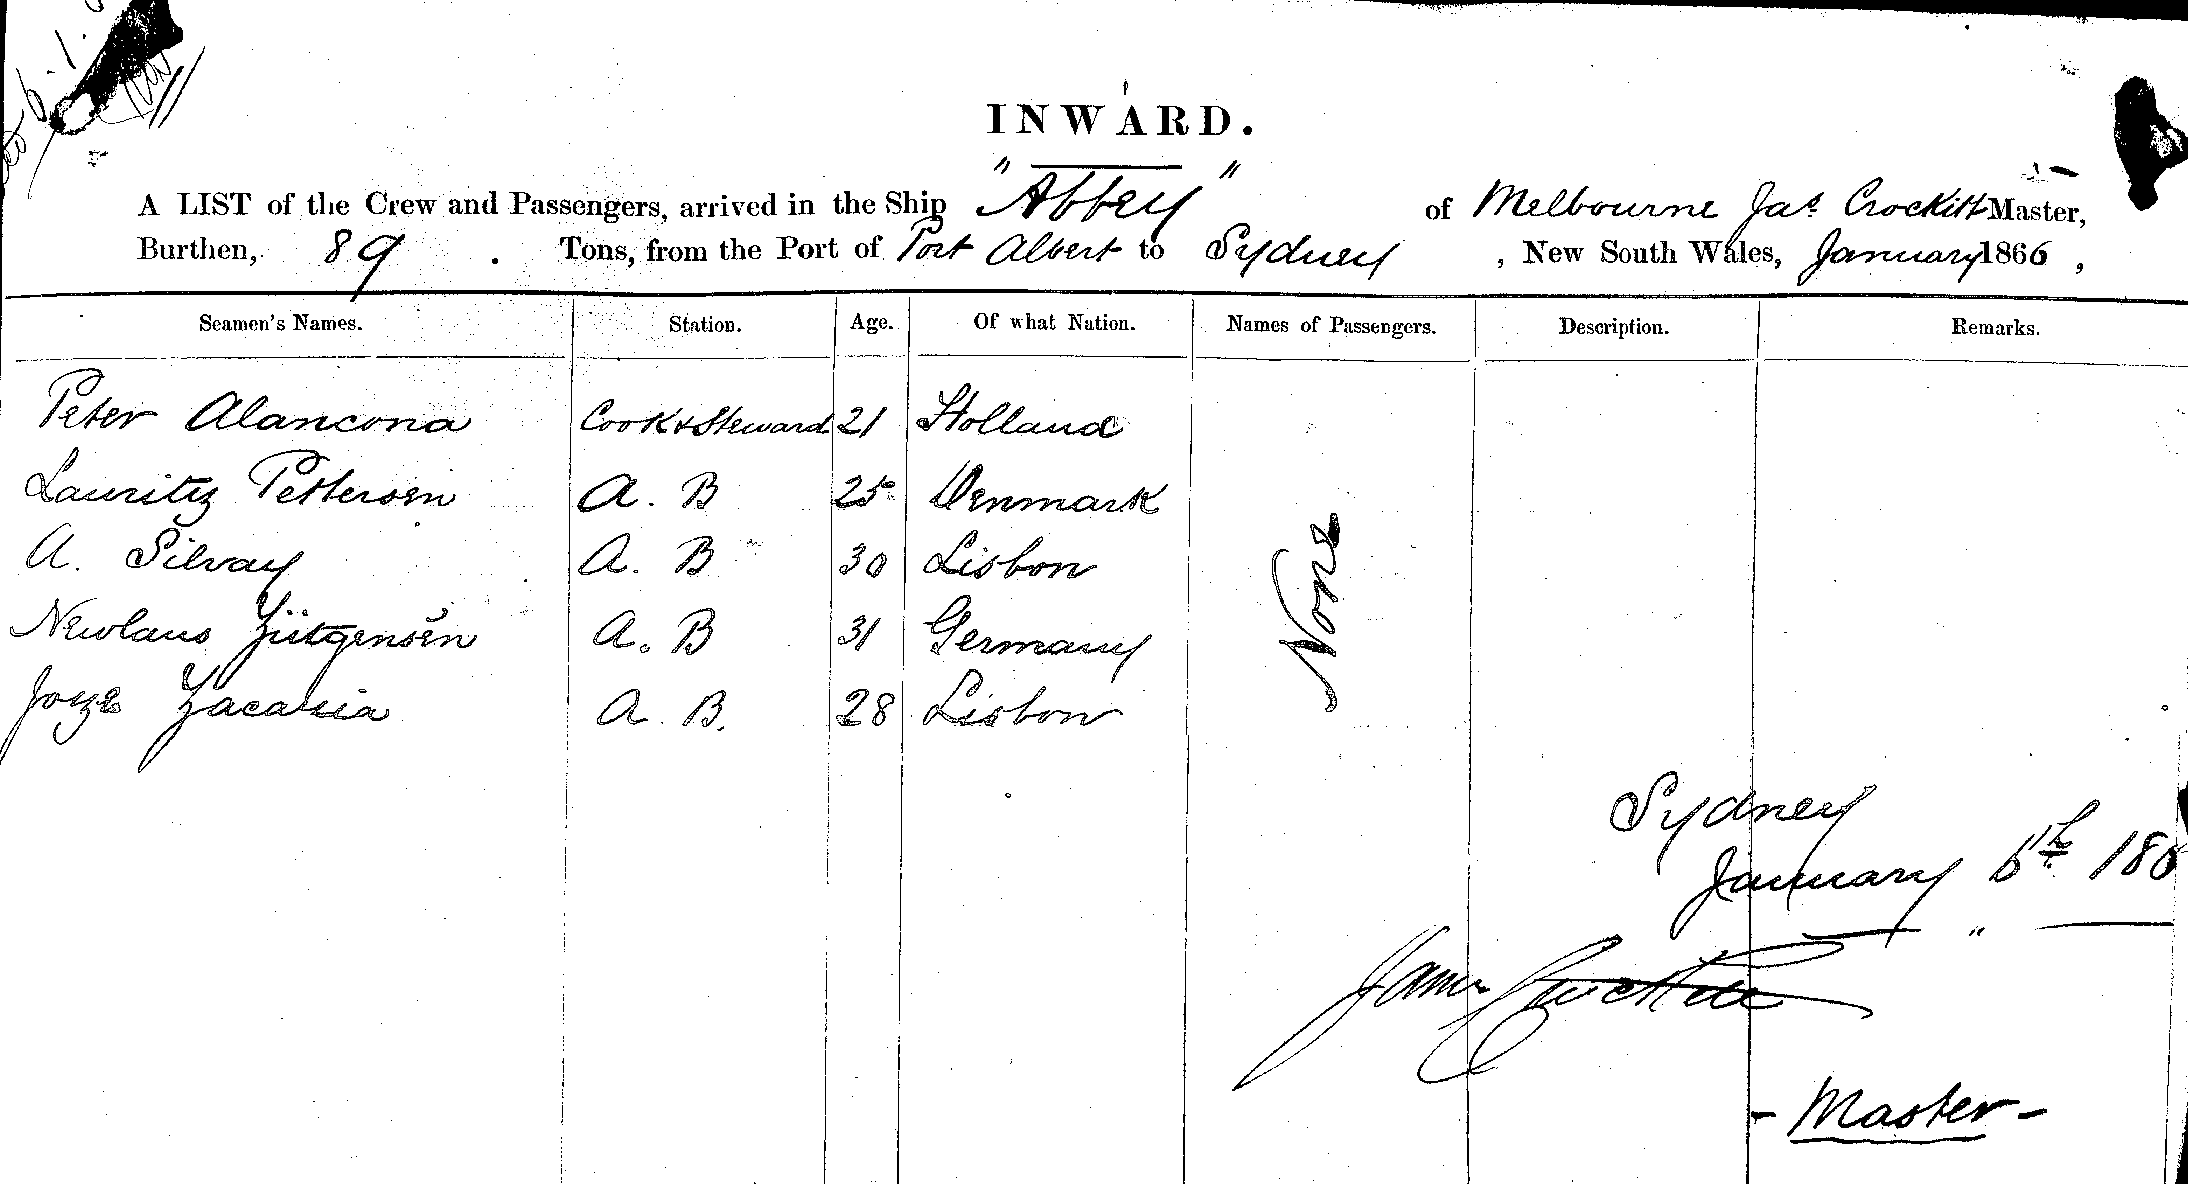 INWARD.
A LIST of the Crew and Passengers, arrived in the Ship "Abbey" of Melbourne Jas. Crockitt Master,
Burthen, 89 . Tons, from the Port of Port Albert to Sydney , New South Wales, January 1866 ,
Seamen's Names. Station. Age. Of what Nation. Names of Passengers. Description. Remarks.
Peter Alancona Cook & Steward 21 Holland
Lauritz Pettersen A. B 25 Denmark
A. Silvay A. B 30 Lisbon
A. B 31 Germany
Zacaria A. B. 28 Lisbon
None
Sydney
January 6th 186
James
- Master -